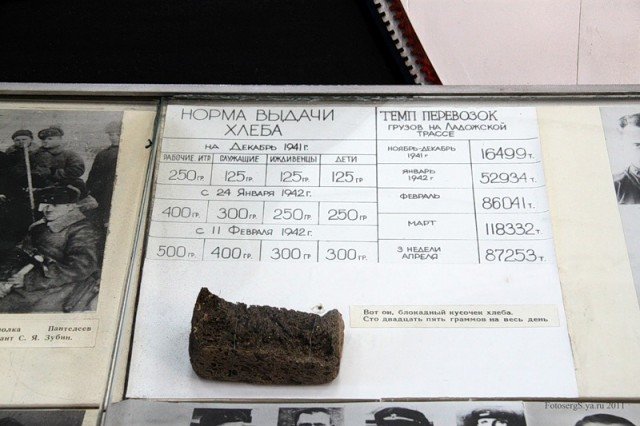 НОРМА ВЫДАЧИ
ХЛЕБА
НА ДЕКАБРЬ 1941 г.
РАБОЧИЕ ИТР СЛУЖАЩИЕ ИЖДИВЕНЦЫ ДЕТИ
250 ГР. 125 ГР. 125 ГР. 125 ГР
С 24 ЯНВАРЯ 1942 г.
400 ГР. 300 ГР. 250 ГР. 250 ГР
С 11 ФЕВРАЛЯ 1942 г.
500 ГР. 400 ГР. 300 ГР. 300 ГР.
ТЕМП ПЕРЕВОЗОК
ГРУЗОВ НА ЛАДОЖСКОЙ
ТРАССЕ
НОЯБРЬ-ДЕКАБРЬ
1941 г. 16499 т.
ЯНВАРЬ
1942 г. 52934 т.
ФЕВРАЛЬ 86041 т.
МАРТ 118332 т.
3 НЕДЕЛИ
АПРЕЛЯ 87253 т.
Вот он, блокадный кусочек хлеба.
Сто двадцать пять граммов на весь день
олка Пантелеев
ант С. Я. Зубин.
FotosergS.ya.ru 2011